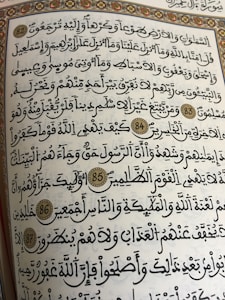 سورة آل عمران
السموات والأرض طوعا وكرها وإليه ترجعون 82
ءامنا بالله وما أنزل علينا وما أنزل على إبراهيم وإسمعيل
ويعقوب والأسباط وما أوتي موسى وعيسى
والنبيئون من ربهم لا نفرق بين أحد منهم ونحن له
مسلمون 83 ومن يبتغ غير الإسلم دينا فلن يقبل منه وهو
في الآخرة من الخسرين 84 كيف يهدي الله قوما كفروا
إيمنهم وشهدوا أن الرسول حق وجاءهم البينت
لا يهدي القوم الظلمين 85 أولئك جزاؤهم أن
لعنة الله والملئكة والناس أجمعين 86 خلدين
لا يخفف عنهم العذاب ولا هم ينظرون 87
تابوا من بعد ذلك وأصلحوا فإن الله غفور